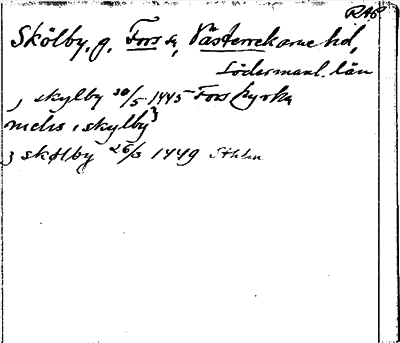 RAP
Skölby, g. Fors sn, Västerrekarne hd,
Södermanl. län
, skylby 30/5 1445 Fors kyrka
nielis i skylby
skølby 26/3 1449 Sthlm